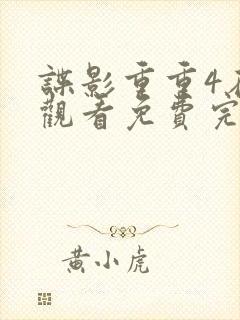 諜影重重4
觀看免費完
黃小虎